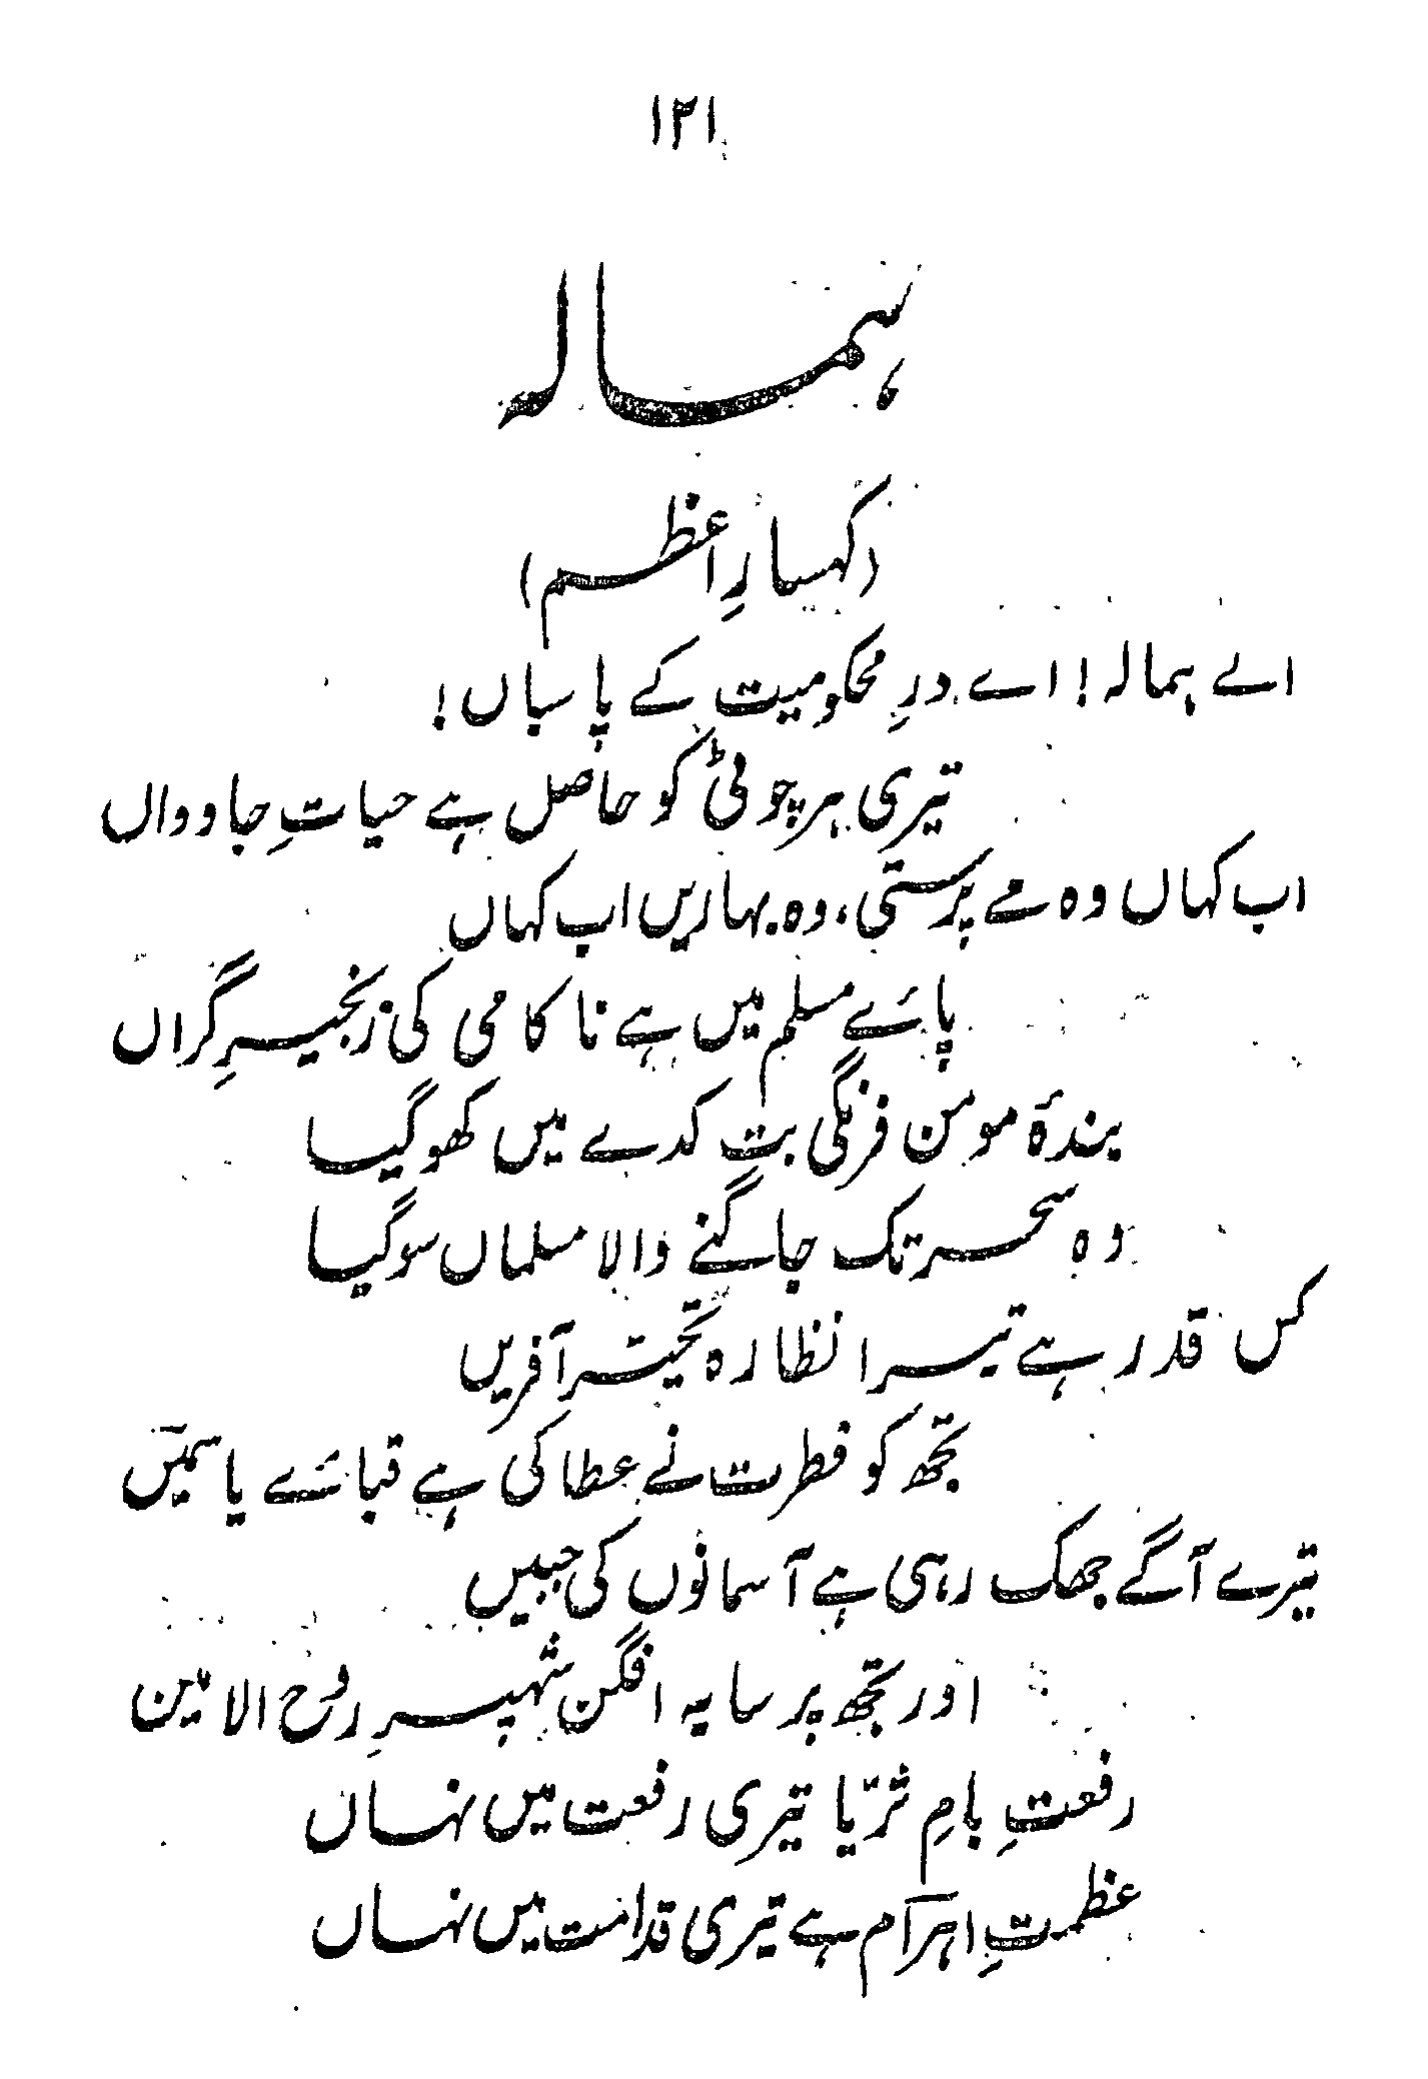 ۱۲۱
ہمالہ
(کہسارِ اعظم)
اے ہمالہ! اے درِ محکومیت کے پاسباں!
تیری ہر چوٹی کو حاصل ہے حیاتِ جاوداں
اب کہاں وہ مے پرستی، وہ بہاریں اب کہاں
پائے مسلم میں ہے ناکامی کی زنجیرِ گراں
بندۂ مومن فرنگی بت کدے میں کھو گیا
وہ سحر تک جاگنے والا مسلماں سو گیا
کس قدر ہے تیرا نظارہ تحیّر آفریں
تجھ کو فطرت نے عطا کی ہے قبائے یاسمیں
تیرے آگے جھک رہی ہے آسمانوں کی جبیں
اور تجھ پر سایہ افگن شہپرِ روح الامیں
رفعتِ بامِ ثریّا تیری رفعت میں نہاں
عظمتِ اہرام ہے تیری قدامت میں نہاں